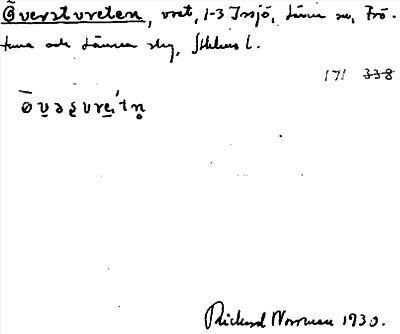 Överstvreten, vret, 1-3 Insjö, Länna sn, Frö-
tuna och Länna skg, Sthlms l.
171 338
Richard Norrman 1930.